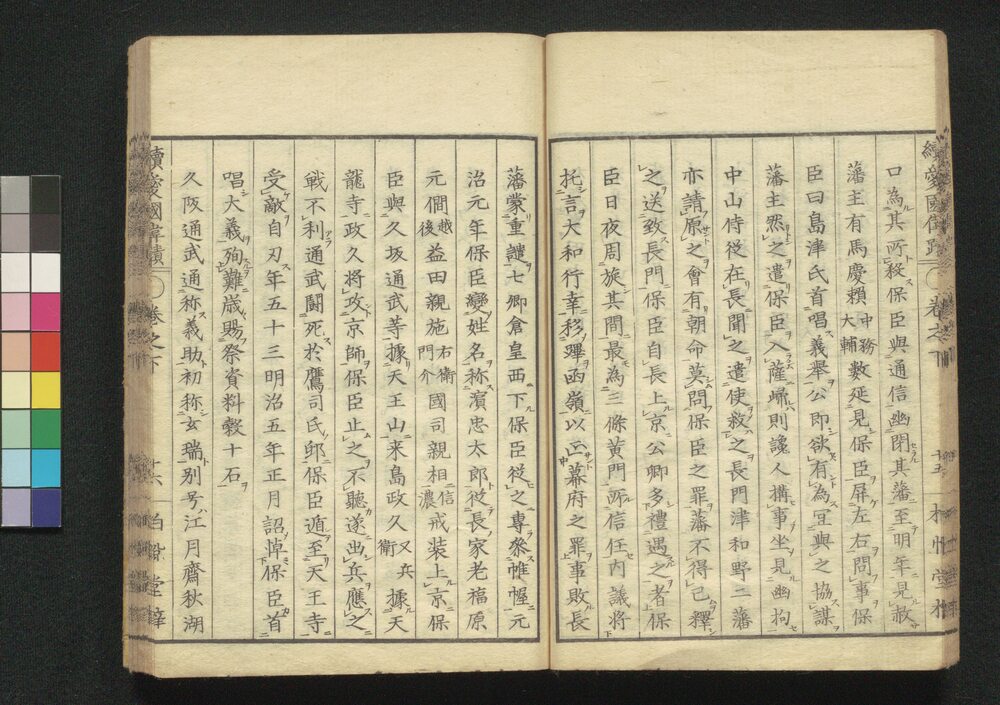 口為其所救保臣與通信幽閉其藩至明年見赦
藩主有馬慶頼中務大輔數延見保臣屏左右問事保
臣曰島津氏首唱義舉公即欲有為宜與之協謀
藩主然之遣保臣入薩歸則讒人搆事坐見幽拘
中山侍從在長聞之遣使救之長門津和野二藩
亦請原之會有朝命莫問保臣之罪藩不得已釋
之送致長門保臣自長上京公卿多禮遇之者保
臣日夜周旋其間最為三條黄門所信任内議將
托言大和行幸移蹕函嶺以正幕府之罪事敗長
藩蒙重譴七卿倉皇西下保臣從之專參帷幄元
治元年保臣變姓名称濱忠太郎從長家老福原
元僩越後益田親施右衛門介國司親相信濃戒装上京保
臣與久坂通武等據天王山来島政久又兵衛據天
龍寺政久將攻京師保臣止之不聽遂出兵應之
戰不利通武鬪死於鷹司氏邸保臣遁至天王寺
受敵自刃年五十三明治五年正月詔悼保臣首
唱大義殉難歳賜祭資料穀十石
久阪通武通称義助初称玄瑞别号江月齋秋湖
續愛國偉蹟
卷之下
十五
續愛國偉績
卷之下
十六